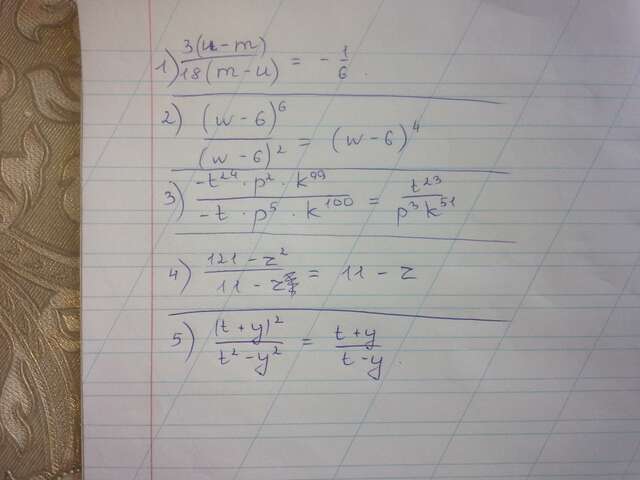 1) 3(u-m)/18(m-u) = - 1/6.
2) (w-6)^6/(w-6)^2 = (w-6)^4
3) -t^24·p^2·k^99/-t·p^5·k^100 = t^23/p^3k^51
4) 121-z^2/11-z = 11-z
5) (t+y)^2/t^2-y^2 = t+y/t-y.